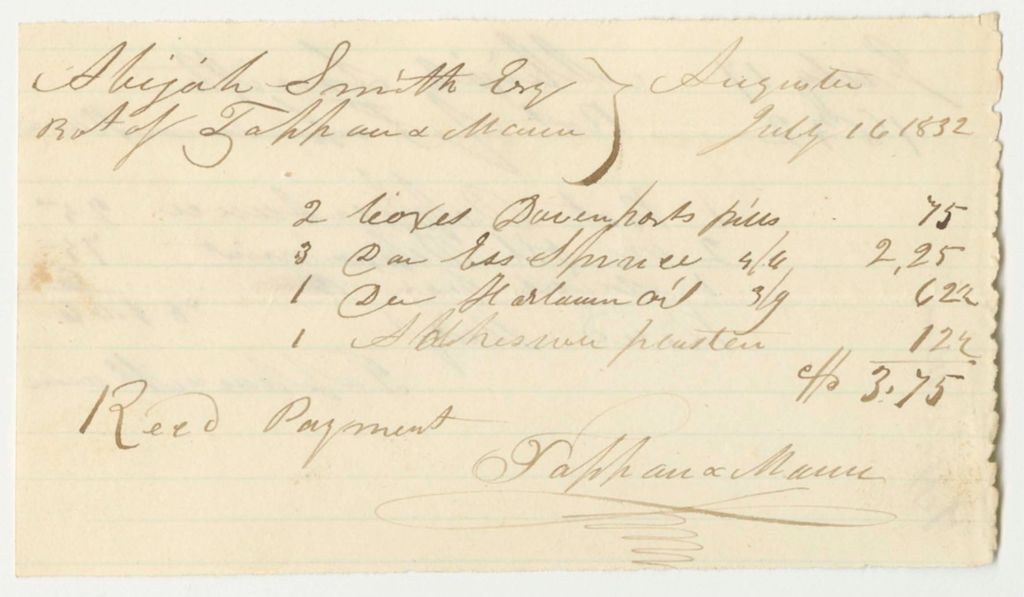 Abijah Smith Esq } Augusta
Bot of Tappan & Mann July 16 1832
2 boxes Davenports pills 75
3 Do Ess Spruce 4/6 2,25
1 Do Harlaum oil 3/9 62½
1 Adhesive plaster 12½
$ 3.75
Recd Payment
Tappan & Mann